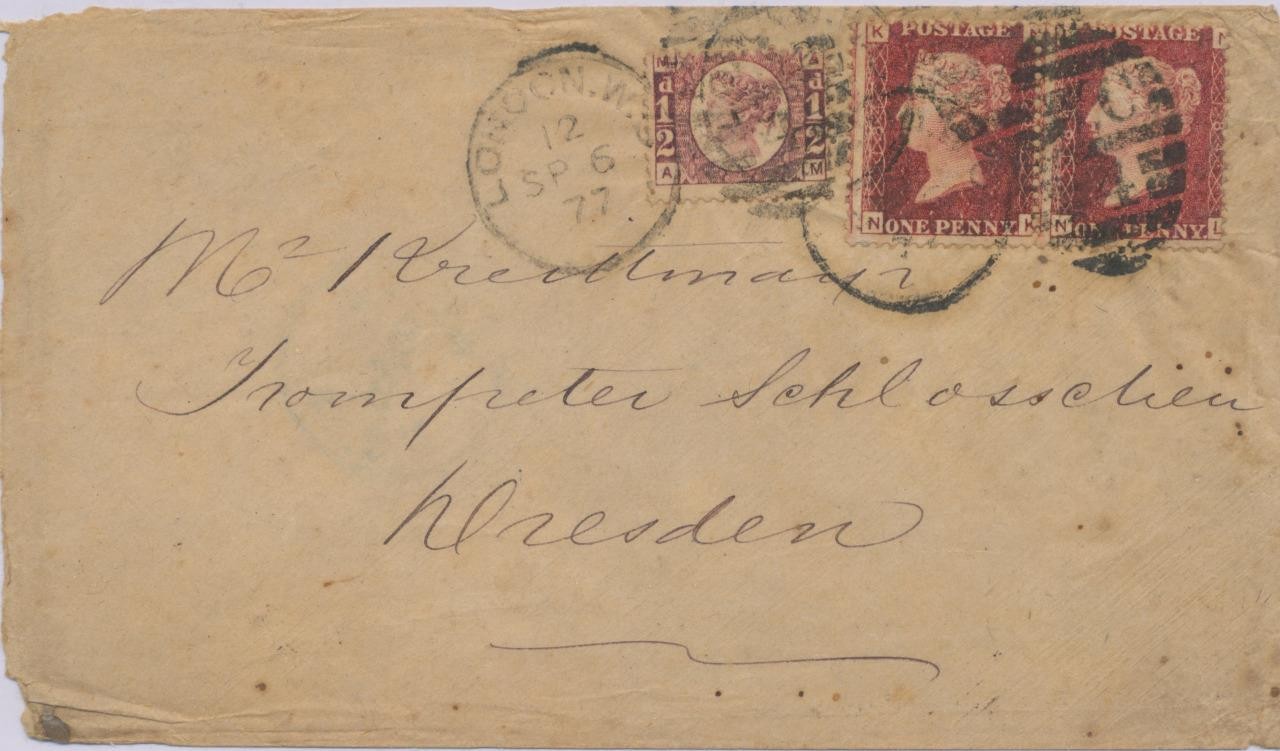 K POSTAGE
POSTAGE
M
d d
1/2 1/2
A M
LONDON.W.
12
SP 6
77
C
N ONE PENNY
N ONE PENNY L
Mr Kreittmayr
Trompeter Schlosschen
Dresden